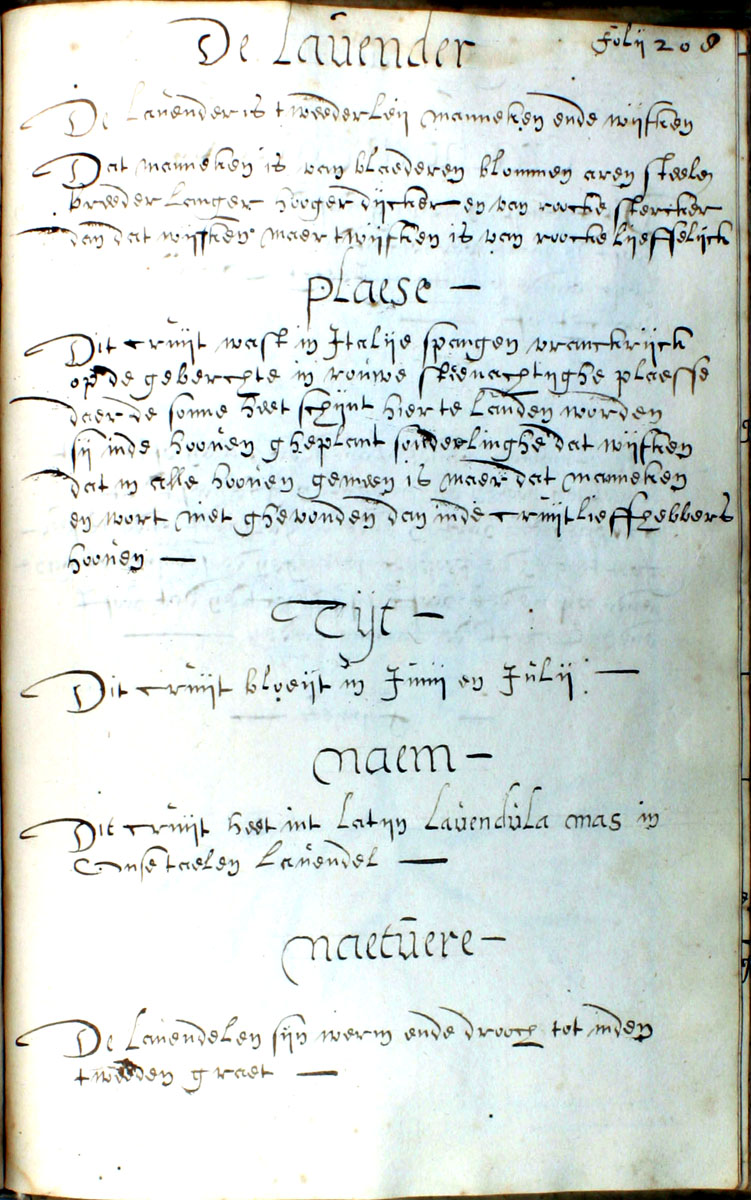 De Lauender
Folij 208
De lauender is tweederleij manneken ende wijfken
Dat manneken is van blaederen blommen aren steelen
breeder langer hooger dijcker en van roocke stercker
dan dat wijfken maer twijfken is van roocke lijeffelijck
plaese —
Dit cruijt wast in Italije spangen vranckrijck
op de geberchte in rouwe steenachtijghe plaesse
daer de sonne heet schijnt hier te landen worden
sij inde hoouen gheplant sonderlinghe dat wijfken
dat in alle hoouen gemeen is maer dat manneken
en wort niet ghevonden dan inde cruijtlieffhebbers
hoouen —
Tijt —
Dit cruijt bloeijt in Junij en Julij —
Naem —
Dit cruijt heet int Latijn Lauendula mas in
Onse taelen Lauendel —
Naetuere —
De lauendelen sijn werm ende drooch tot inden
tweeden graet —